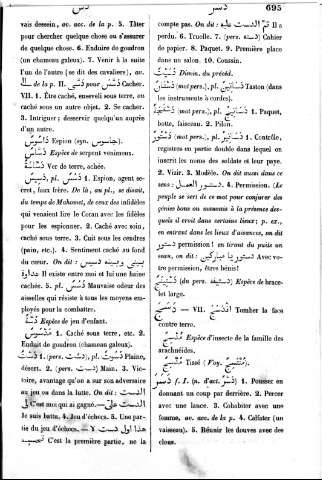 دسر
دس
695
vais dessein, av. acc. de la p. 5. Tâter
pour chercher quelque chose ou s'assurer
de quelque chose. 6. Enduire de goudron
(un chameau galeux). 7. Venir à la suite
l'un de l'autre (se dit des cavaliers), av.
de la p. II. دسّس pour دسّى Cacher.
VII. 1. Être caché, enseveli sous terre, ou
caché sous un autre objet. 2. Se cacher.
3. Intriguer; desservir quelqu'un auprès
d'un autre.
داسوس Espion (syn. جاسوس).
دسّاس Espèce de serpent venimeux.
دسّاسة Ver de terre, achée.
دسيس, pl. دسس 1. Espion, agent se-
cret, faux frère. De là, au pl., se disait,
du temps de Mahomet, de ceux des infidèles
qui venaient lire le Coran avec les fidèles
pour les espionner. 2. Caché avec soin,
caché sous terre. 3. Cuit sous les cendres
(pain, etc.). 4. Sentiment caché au fond
du cœur. On dit : بيني وبينه دسيس
عداوة Il existe entre moi et lui une haine
cachée. 5. pl. دسس Mauvaise odeur des
aisselles qui résiste à tous les moyens em-
ployés pour la combattre.
Espèce de jeu d'enfant.
مدسوس 1. Caché sous terre, etc. 2.
Enduit de goudron (chameau galeux).
دست 1. (pers. دشت), pl. دسوت Plaine,
désert. 2. (pers. دست) Main. 3. Vic-
toire, avantage qu'on a sur son adversaire
au jeu ou dans la lutte. On dit : الدست
لي C'est moi qui ai gagné. الدست علي
Je suis battu. 4. Jeu d'échecs. 5. Une par-
tie du jeu d'échecs. هذا اول دست لا
C'est la première partie, ne la
compte pas. On dit : تم الدست عليه Il a
perdu. 6. Truelle. 7. (pers. دسته) Cahier
de papier. 8. Paquet. 9. Première place
dans un salon. 10. Coussin.
دسيت Dimin. du précéd.
دستان (mot pers.), pl. دساتين Taston (dans
les instruments à cordes).
(mot pers.), pl. 1. Paquet,
botte, faisceau. 2. Pilon.
دستور (mot pers.), pl. دساتير 1. Contrôle,
registres en partie double dans lequel on
inscrit les noms des soldats et leur paye.
2. Vizir. 3. Modèle. On dit aussi dans ce
sens : دستور العمل. 4. Permission. (Le
peuple se sert de ce mot pour conjurer des
génies bons ou mauvais à la présence des-
quels il croit dans certains lieux; p. ex.,
en entrant dans les lieux d'aisances, on dit
دستور permission! en tirant du puits un
seau, on dit : دستور يا مباركين Avec vo-
tre permission, êtres bénis!
(du pers. دستينه) Espèce de brace-
let large.
دسج — VII. اندسج Tomber la face
contre terre.
مدسج Espèce d'insecte de la famille des
arachnéides.
Tissé (Voy. منتسج).
دسر f. I. (n. d'act. دسر) 1. Poussez en
donnant un coup par derrière. 2. Percer
avec une lance. 3. Cohabiter avec une
femme, av. acc. de la p. 4. Calfater (un
vaisseau). 5. Réunir les douves avec des
clous.